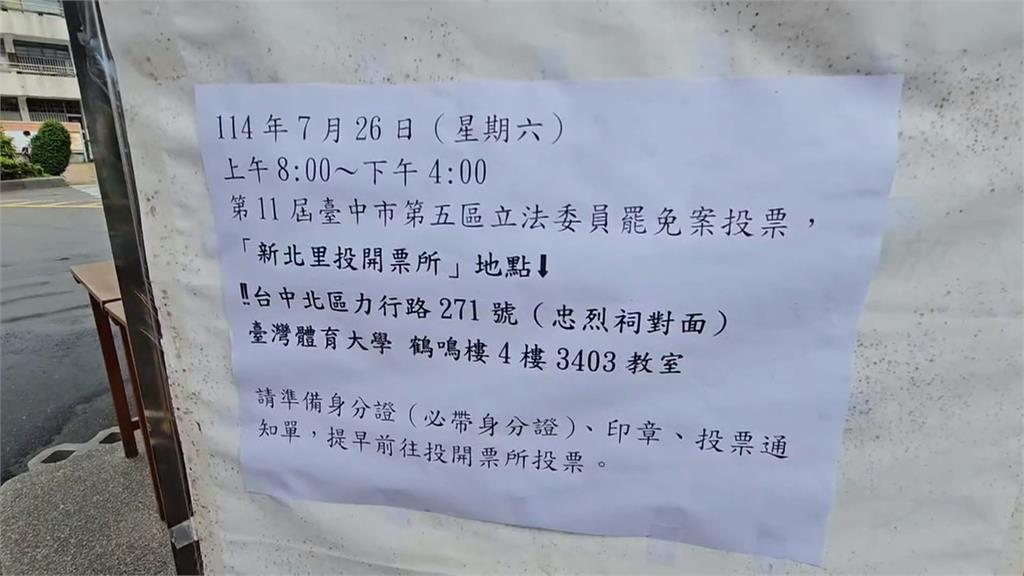 114年7月26日（星期六）
上午8:00～下午4:00
第11屆臺中市第五區立法委員罷免案投票，
「新北里投開票所」地點⬇
‼台中北區力行路271號（忠烈祠對面）
臺灣體育大學 鶴鳴樓4樓3403教室
請準備身分證（必帶身分證）、印章、投票通
知單，提早前往投開票所投票。